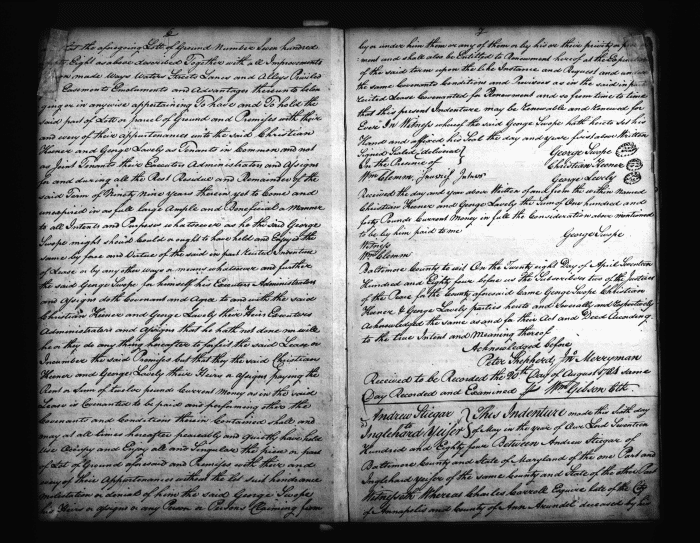 6
that the aforegoing Lott of Ground Number Seven hundred
forty Eight as above described Together with all Improvements
made Ways Waters Streets Lanes and Alleys Priviledges
Easements Emoluments and Advantages thereunto belonging
or in anywise appertaining To have and To hold the
said part of Lott or parcel of Ground and Premises with their
and every of their appurtenances unto the said Christian
Keener and George Lovely as Tenants in Common and not
as Joint Tenants their Executors Administrators and Assigns
for and during all the Rest Residue and Remainder of the
said Term of Ninety Nine years therein yet to Come and
unexpired in as full large Ample and Beneficial a Manner
to all Intents and Purposes whatsoever as he the said George
Swope might should could or ought to have held and Enjoyed the
same by force and Virtue of the said in part recited Indenture
of Lease or by any other ways or means whatsoever and further
the said George Swope for himself his Executors Administrators
and Assigns doth Covenant and Agree to and with the said
Christian Keener and George Lovely their Heirs Executors
Administrators and Assigns that he hath not done nor will
he or they do any thing hereafter to forfeit the said Lease or
Incumber the said Premises but that they the said Christian
Keener and George Lovely their Heirs or Assigns paying the
Rent or Sum of twelve pounds Current Money as in the said
Lease is Covenanted to be paid and performing also the
Covenants and Conditions therein Contained shall and
may at all times hereafter peaceably and Quietly have hold
Use Occupy and Enjoy all and Singular the piece or part
of Lot of Ground aforesaid and Premises with their and
every of their Appurtenances without the Let suit hindrance
molestation or denial of him the said George Swope
his Heirs or Assigns or any Person or Persons Claiming from
7
by or under him them or any of them or by his or their privity or
ment and shall also be Entitled to Renewment hereof at the Expiration
of the said term upon the like Instance and Request and under
the same Covenants Conditions and Provisoes as in the said in part
recited Lease Covenanted for Renewment and so from time to time
that this present Indenture may be Renewable and Renewed for
Ever In Witness whereof the said George Swope hath hereto Set his
Hand and affixed his Seal the day and year first above Written
Signed Sealed & delivered George Swope
In the Presence of Christian Keener
Wm Clemm George Lovely
Received the day and Year above Written of and from the within Named
Christian Keener and George Lovely the Sum of One hundred and
fifty Pounds Current Money in full the Consideration above mentioned
to be by him paid to me George Swope
Witness
Wm Clemm
Baltimore County to wit On the Twenty eight Day of April Seventeen
Hundred and Eighty four before us the Subscribers two of the Justices
of the Peace for the County aforesaid came George Swope Christian
Keener & George Lovely parties hereto and Severally and Respectively
Acknowledged the same as and for their Act and Deed According
to the true Intent and Meaning thereof
Acknowledged before
Peter Shepherd Jno Merryman
Received to be Recorded the 20th Day of August 1784 same
Day Recorded and Examined Wm Gibson Clk
Andrew Stigar This Indenture made this sixth day
to of May in the year of Our Lord Seventeen
Inglehard Yeiser
Hundred and Eighty four Between Andrew Stigar of
Baltimore County and State of Maryland of the one Part and
Inglehard Yeiser of the same County and State of the other Part
Witnesseth Whereas Charles Carroll Esquire late of the City
of Annapolis and County of Ann Arundel deceased by his